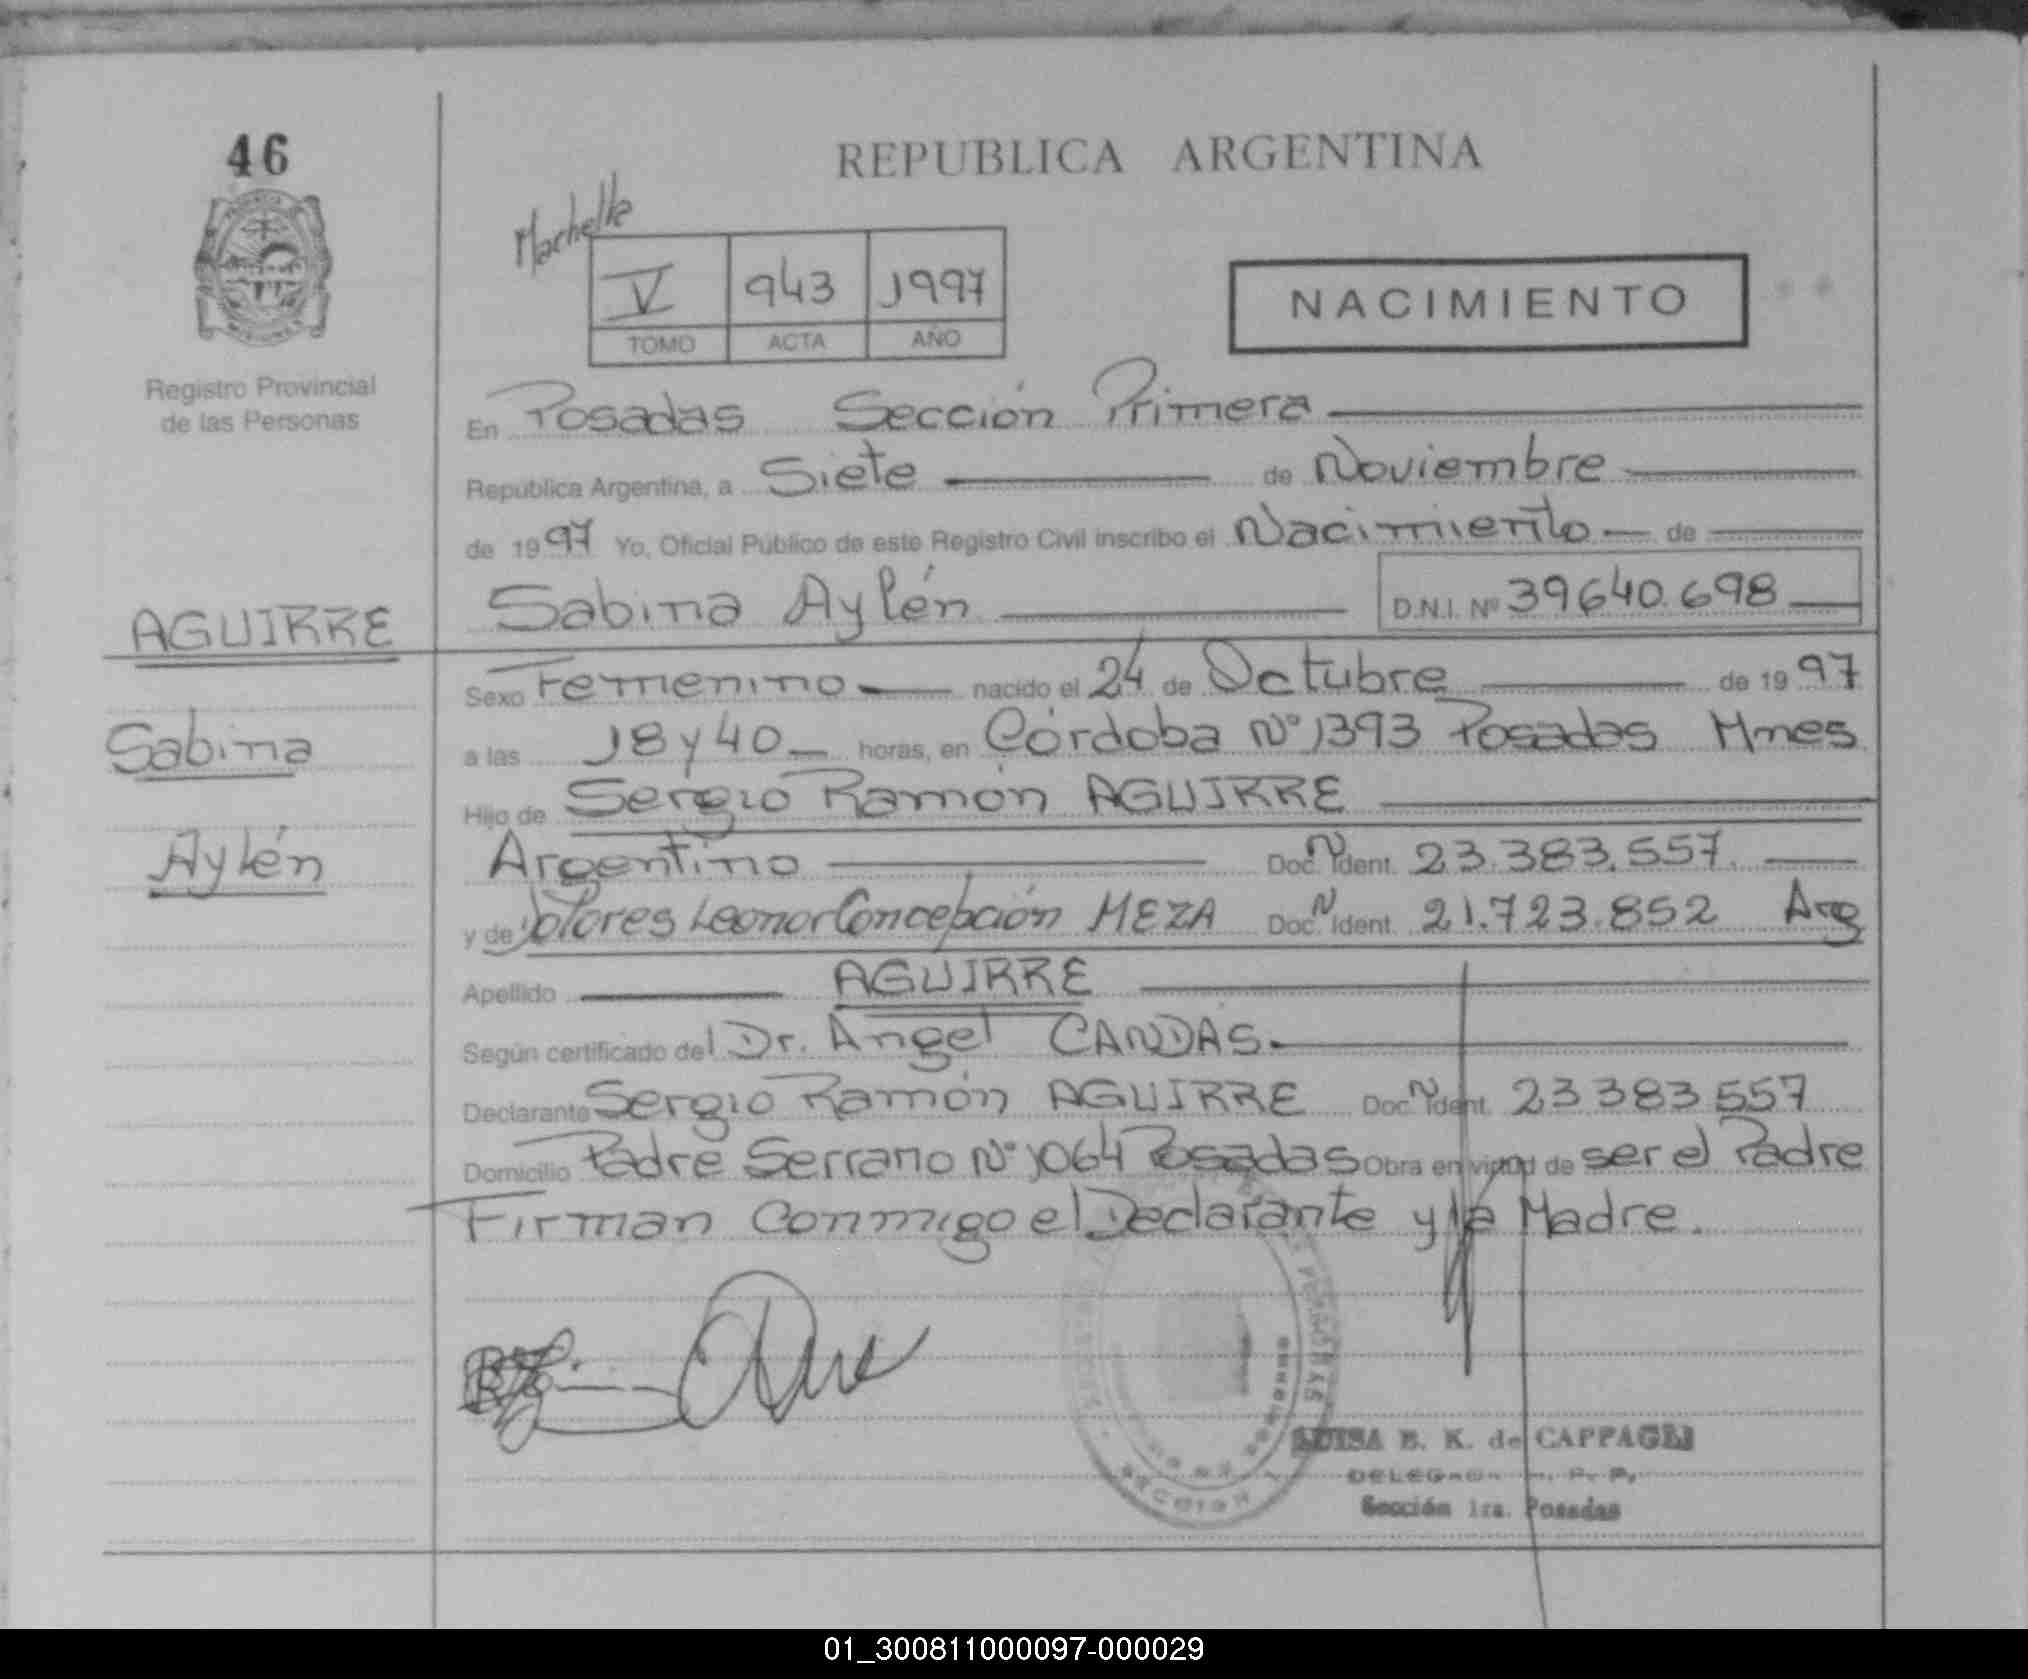 46
REPUBLICA ARGENTINA
V 943 1997
TOMO ACTA AÑO
NACIMIENTO
Registro Provincial
de las Personas
En Posadas Sección Primera
República Argentina, a Siete de Noviembre
de 1997 Yo, Oficial Público de este Registro Civil inscribo el Nacimiento de
Sabina Aylén D.N.I. Nº 39640.698
AGUIRRE
Sabina
Aylén
Sexo Femenino nacido el 24 de Octubre de 1997
a las 18 y 40 horas, en Córdoba Nº 1393 Posadas Mnes
Hijo de Sergio Ramón AGUIRRE
Argentino Doc. N Ident. 23.383.557.
y de Dolores Leonor Concepción MEZA Doc. N Ident. 21.723.852 Arg
Apellido AGUIRRE
Según certificado del Dr. Angel CANDAS.
Declarante Sergio Ramón AGUIRRE Doc. N Ident. 23 383 557
Domicilio Padre Serrano Nº 1064 Posadas Obra en virtud de ser el Padre
Firman Conmigo el Declarante y la Madre.
LUISA B. K. de CAPPAGLI
Sección 1ra. Posadas
01_300811000097-000029